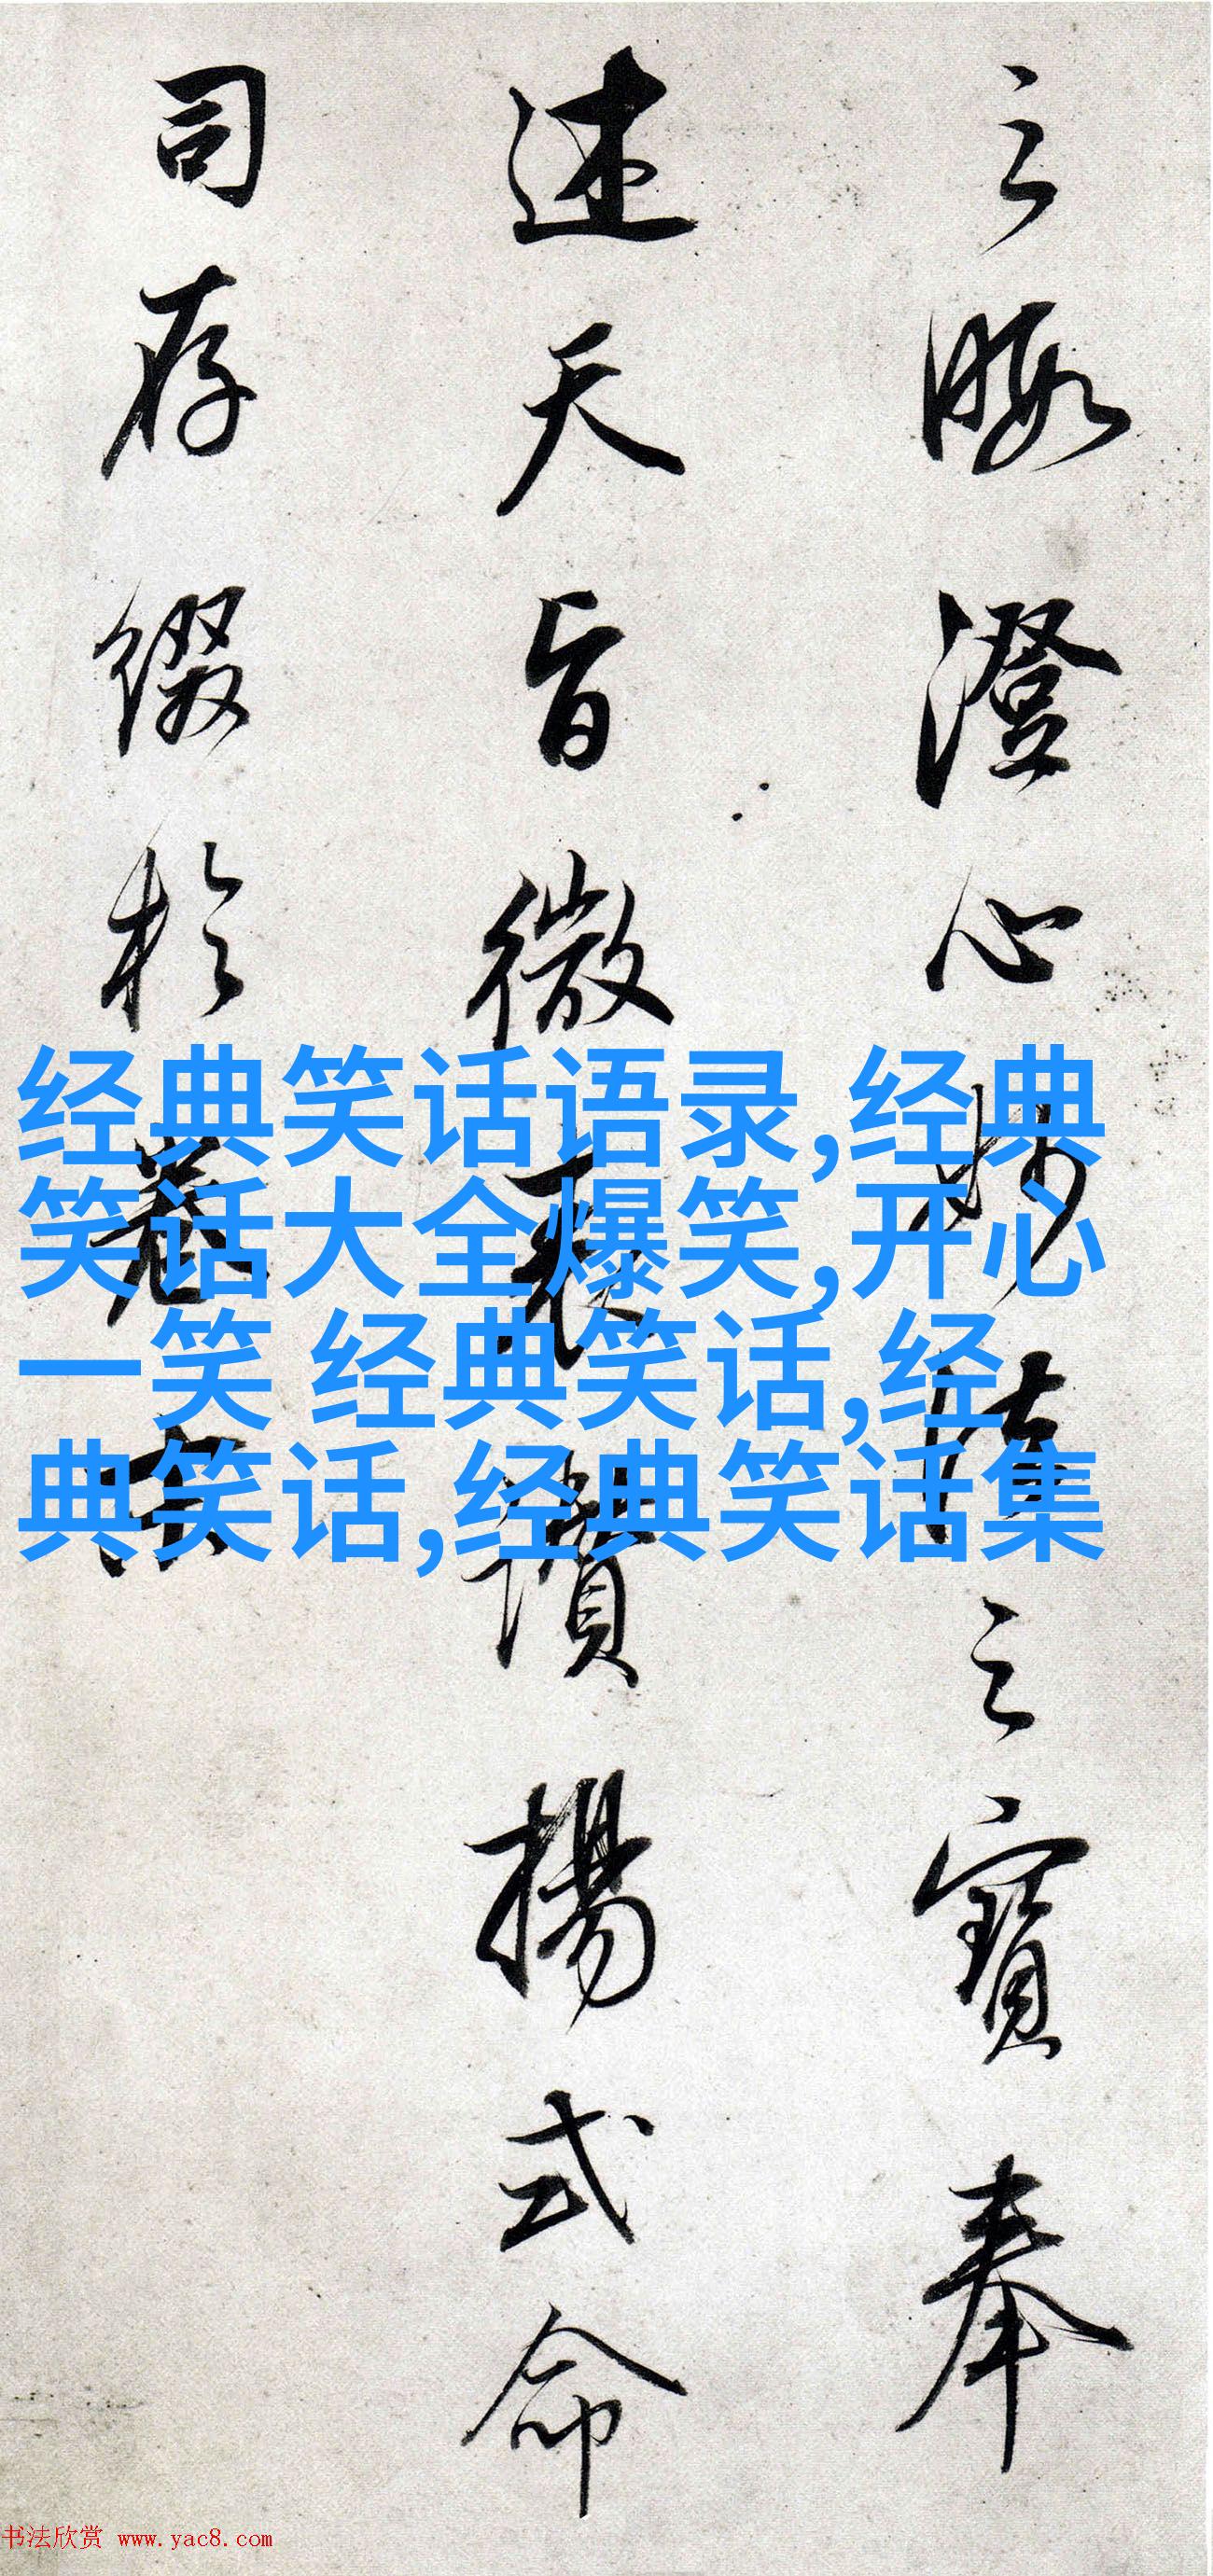 之暇澄心妙法之寶奉
述天旨微表讚揚式命
司存綴於卷末
经典笑话语录,经典
笑话大全爆笑,开心
一笑 经典笑话,经
典笑话,经典笑话集
书法欣赏 www.yac8.com